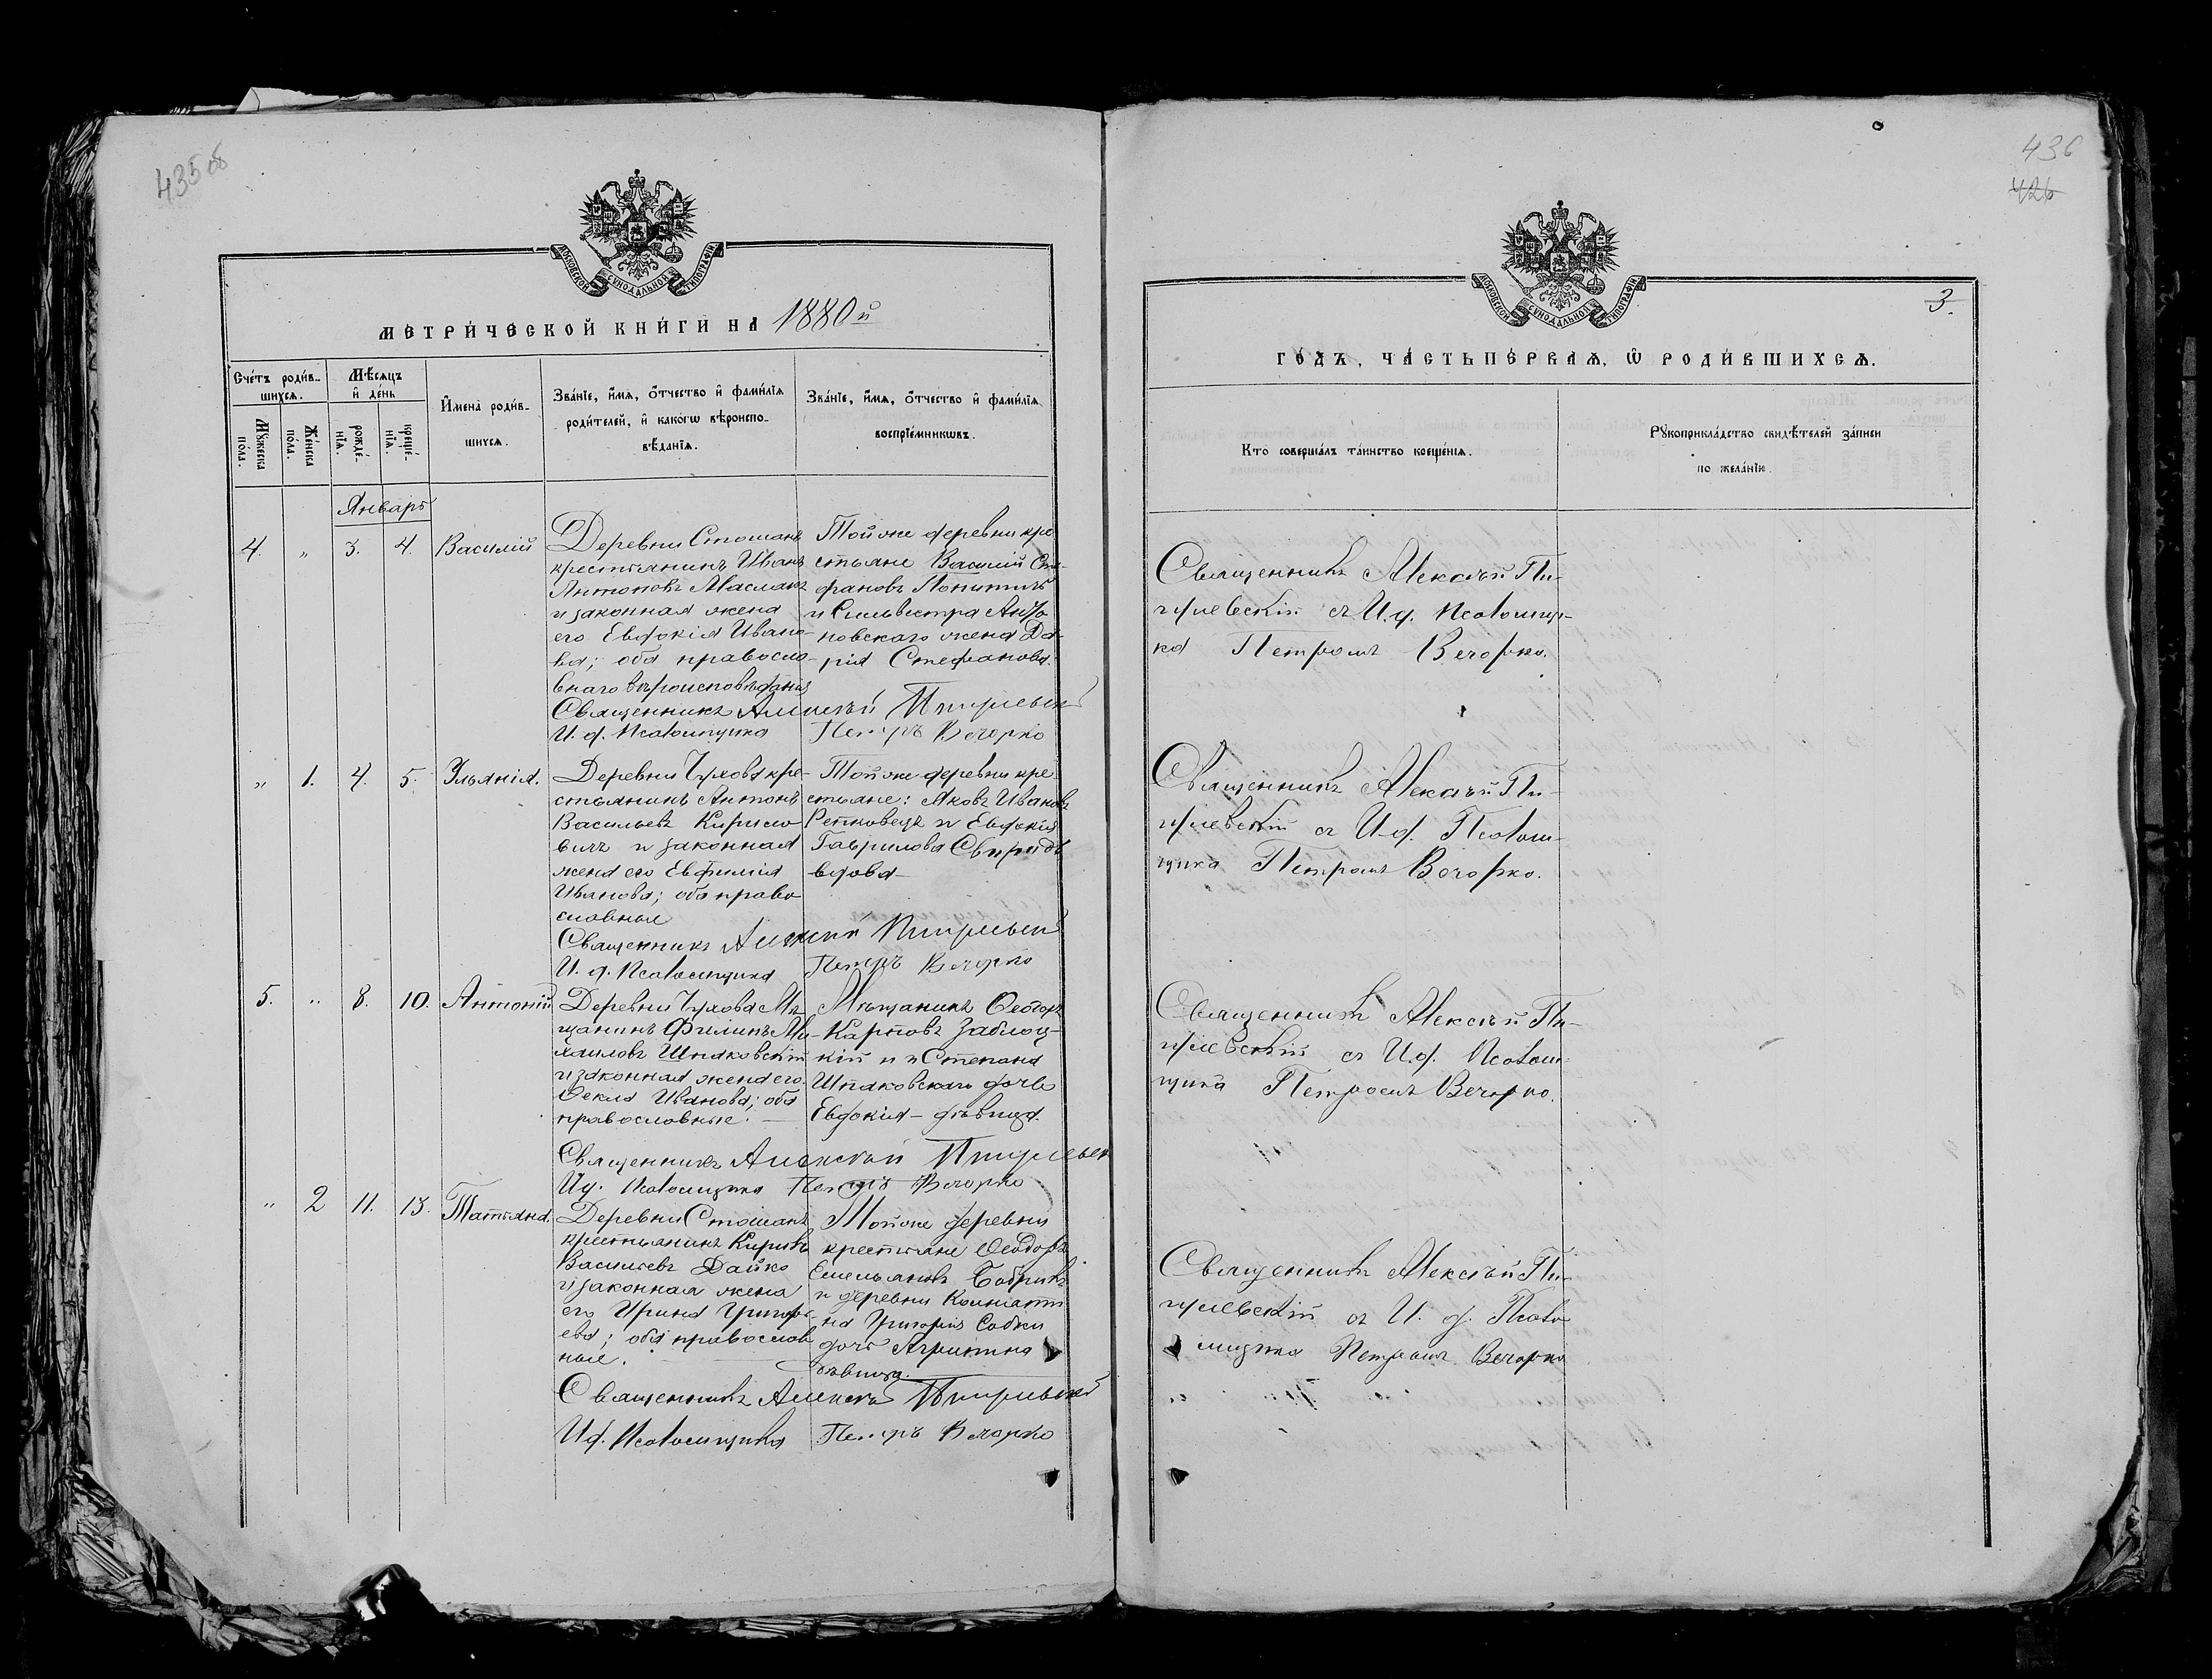 435 об
МОСКОВСКОЙ СѴНОДАЛЬНОЙ ТИПОГРАФІИ
МЕТРИ́ЧЕСКОЙ КНИ́ГИ НА 1880й
Сче́тъ роди́в-
шихсѧ.
Мѣ́сѧцъ
и҆ де́нь
Мꙋ́жеска
по́ла.
Же́нска
по́ла.
рожде́-
нїѧ.
креще́-
нїѧ.
И҆мена̀ роди́в-
шихсѧ.
Зва́нїе, и҆́мѧ, ѻ҆́тчество и҆ фами́лїѧ
роди́телей, и҆ како́гѡ вѣроиспо-
вѣ́данїѧ.
Зва́нїе, и҆́мѧ, ѻ҆́тчество и҆ фами́лїѧ
воспрїе́мникѡвъ.
Январь
4. „ 3. 4. Василій
Деревни Стошанъ
крестьянинъ Иванъ
Антоновъ Маслакъ
и законная жена
его Евдокія Ивано-
ва; оба правосла-
внаго вѣроисповѣданія
Той же деревни кре
стьяне Василій Сте-
фановъ
и Сильвестра
новскаго жена Да-
рія Стефанова.
Священникъ Алексѣй
И. д. Псаломщика Петръ Вечорко
„ 1. 4. 5. Ульянія.
Деревни Чухова кре-
стьянинъ Антонъ
Васильевъ Кирило-
вичъ и законная
жена его Евфимія
Иванова; оба право-
славные
Той же деревни кре-
стьяне: Яковъ Ивановъ
и Евдокія
Гаврилова Свиридъ
вдова
Священникъ Алексѣй
И. д. Псаломщика Петръ Вечорко
5. „ 8. 10. Антоній
Деревни Чухова Мѣ-
щанинъ Филипъ Ми-
хаиловъ Шпаковскій
и законная жена его
Ѳекла Иванова; оба
православные.
Мѣщанинъ Ѳеодоръ
Карповъ Заблоц-
кій и Степана
Шпаковскаго дочь
Евдокія – дѣвица.
Священникъ Алексѣй
И.д. Псаломщика Петръ Вечорко
„ 2 11. 13. Татіяна.
Деревни Стошанъ
крестьянинъ Кирилъ
Васильевъ Дайко
и законная жена
его Ирина Григорь-
ева; оба православ
ные.
Той же деревни
крестьяне Ѳеодоръ
Емельяновъ Бобрикъ
и деревни
на Григорія
дочь Агрипина
дѣвица.
Священникъ Алексѣй
И.д. Псаломщика Петръ Вечорко
436
426
3.
МОСКОВСКОЙ СѴНОДАЛЬНОЙ ТИПОГРАФІИ
ГО́ДЪ, ЧА́СТЬ ПЕ́РВАѦ, Ѡ҆ РОДИ́ВШИХСѦ.
Кто̀ соверша́лъ та́инство креще́нїѧ.
Рꙋкоприкла́дство свидѣ́телей за́писи
по жела́нїю.
Священникъ Алексѣй Пи-
гулевскій съ И.д. Псаломщи-
ка Петромъ Вечорко.
Священникъ Алексѣй Пи-
гулевскій съ И.д. Псалом-
щика Петромъ Вечорко.
Священникъ Алексѣй Пи-
гулевскій съ И.д. Псалом-
щика Петромъ Вечорко.
Священникъ Алексѣй Пи-
гулевскій съ И. д. Псало
мщика Петромъ Вечорко